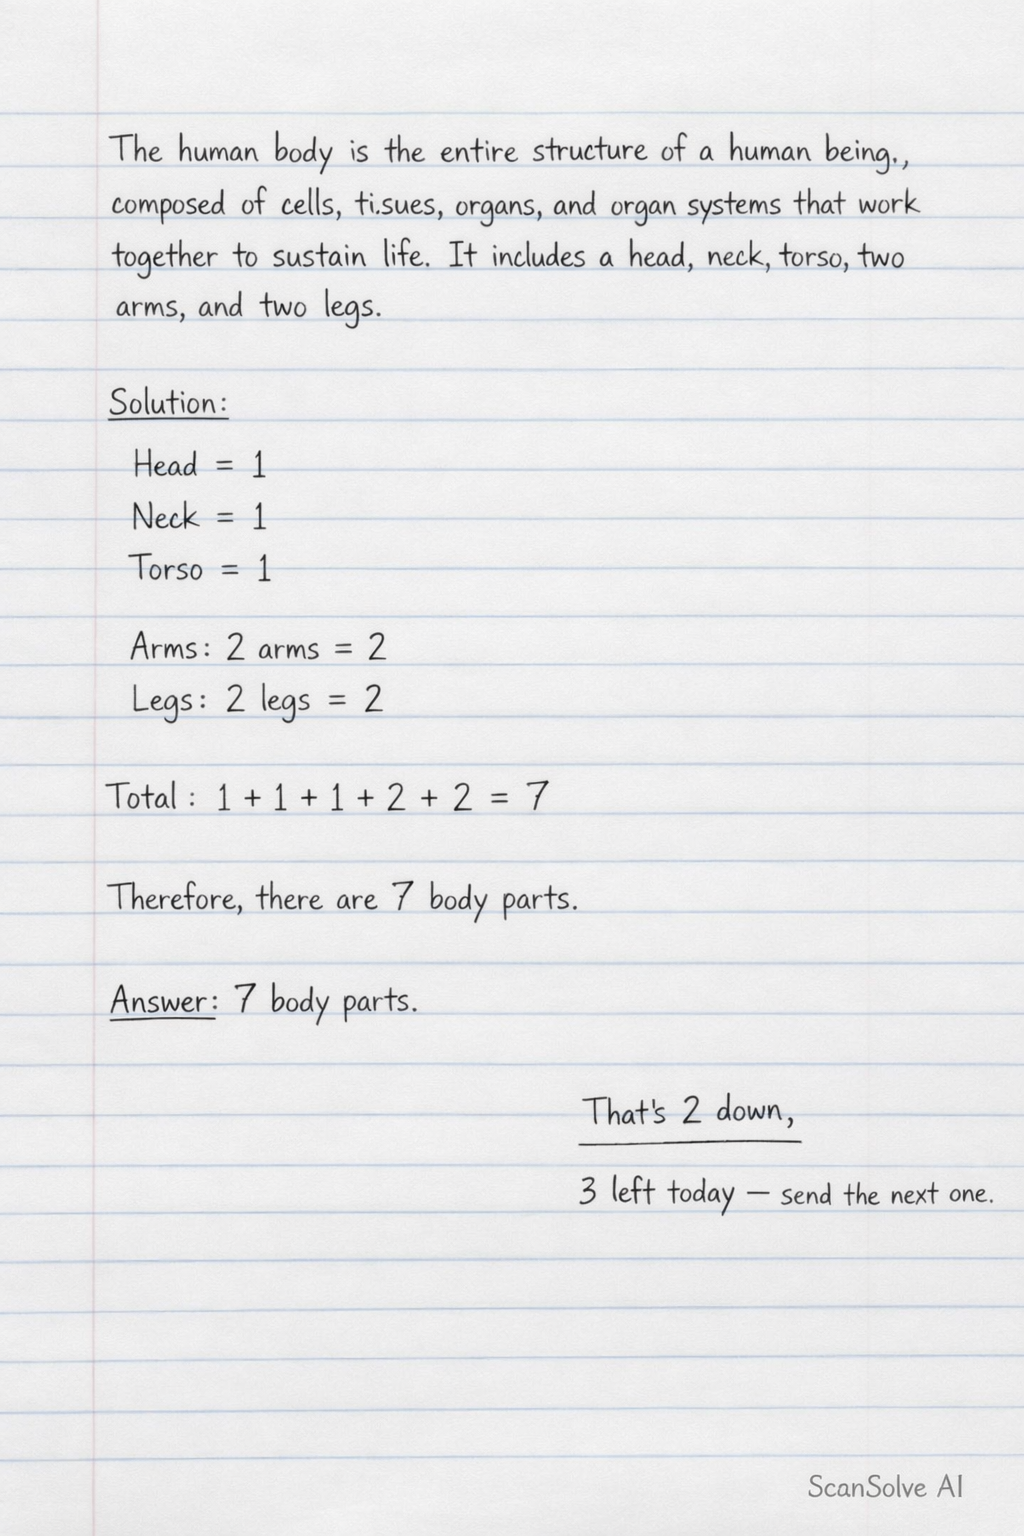 The human body is the entire structure of a human being.,
composed of cells, ti.sues, organs, and organ systems that work
together to sustain life. It includes a head, neck, torso, two
arms, and two legs.
Solution:
Head = 1
Neck = 1
Torso = 1
Arms: 2 arms = 2
Legs: 2 legs = 2
Total : 1 + 1 + 1 + 2 + 2 = 7
Therefore, there are 7 body parts.
Answer: 7 body parts.
That's 2 down,
3 left today — send the next one.
ScanSolve AI